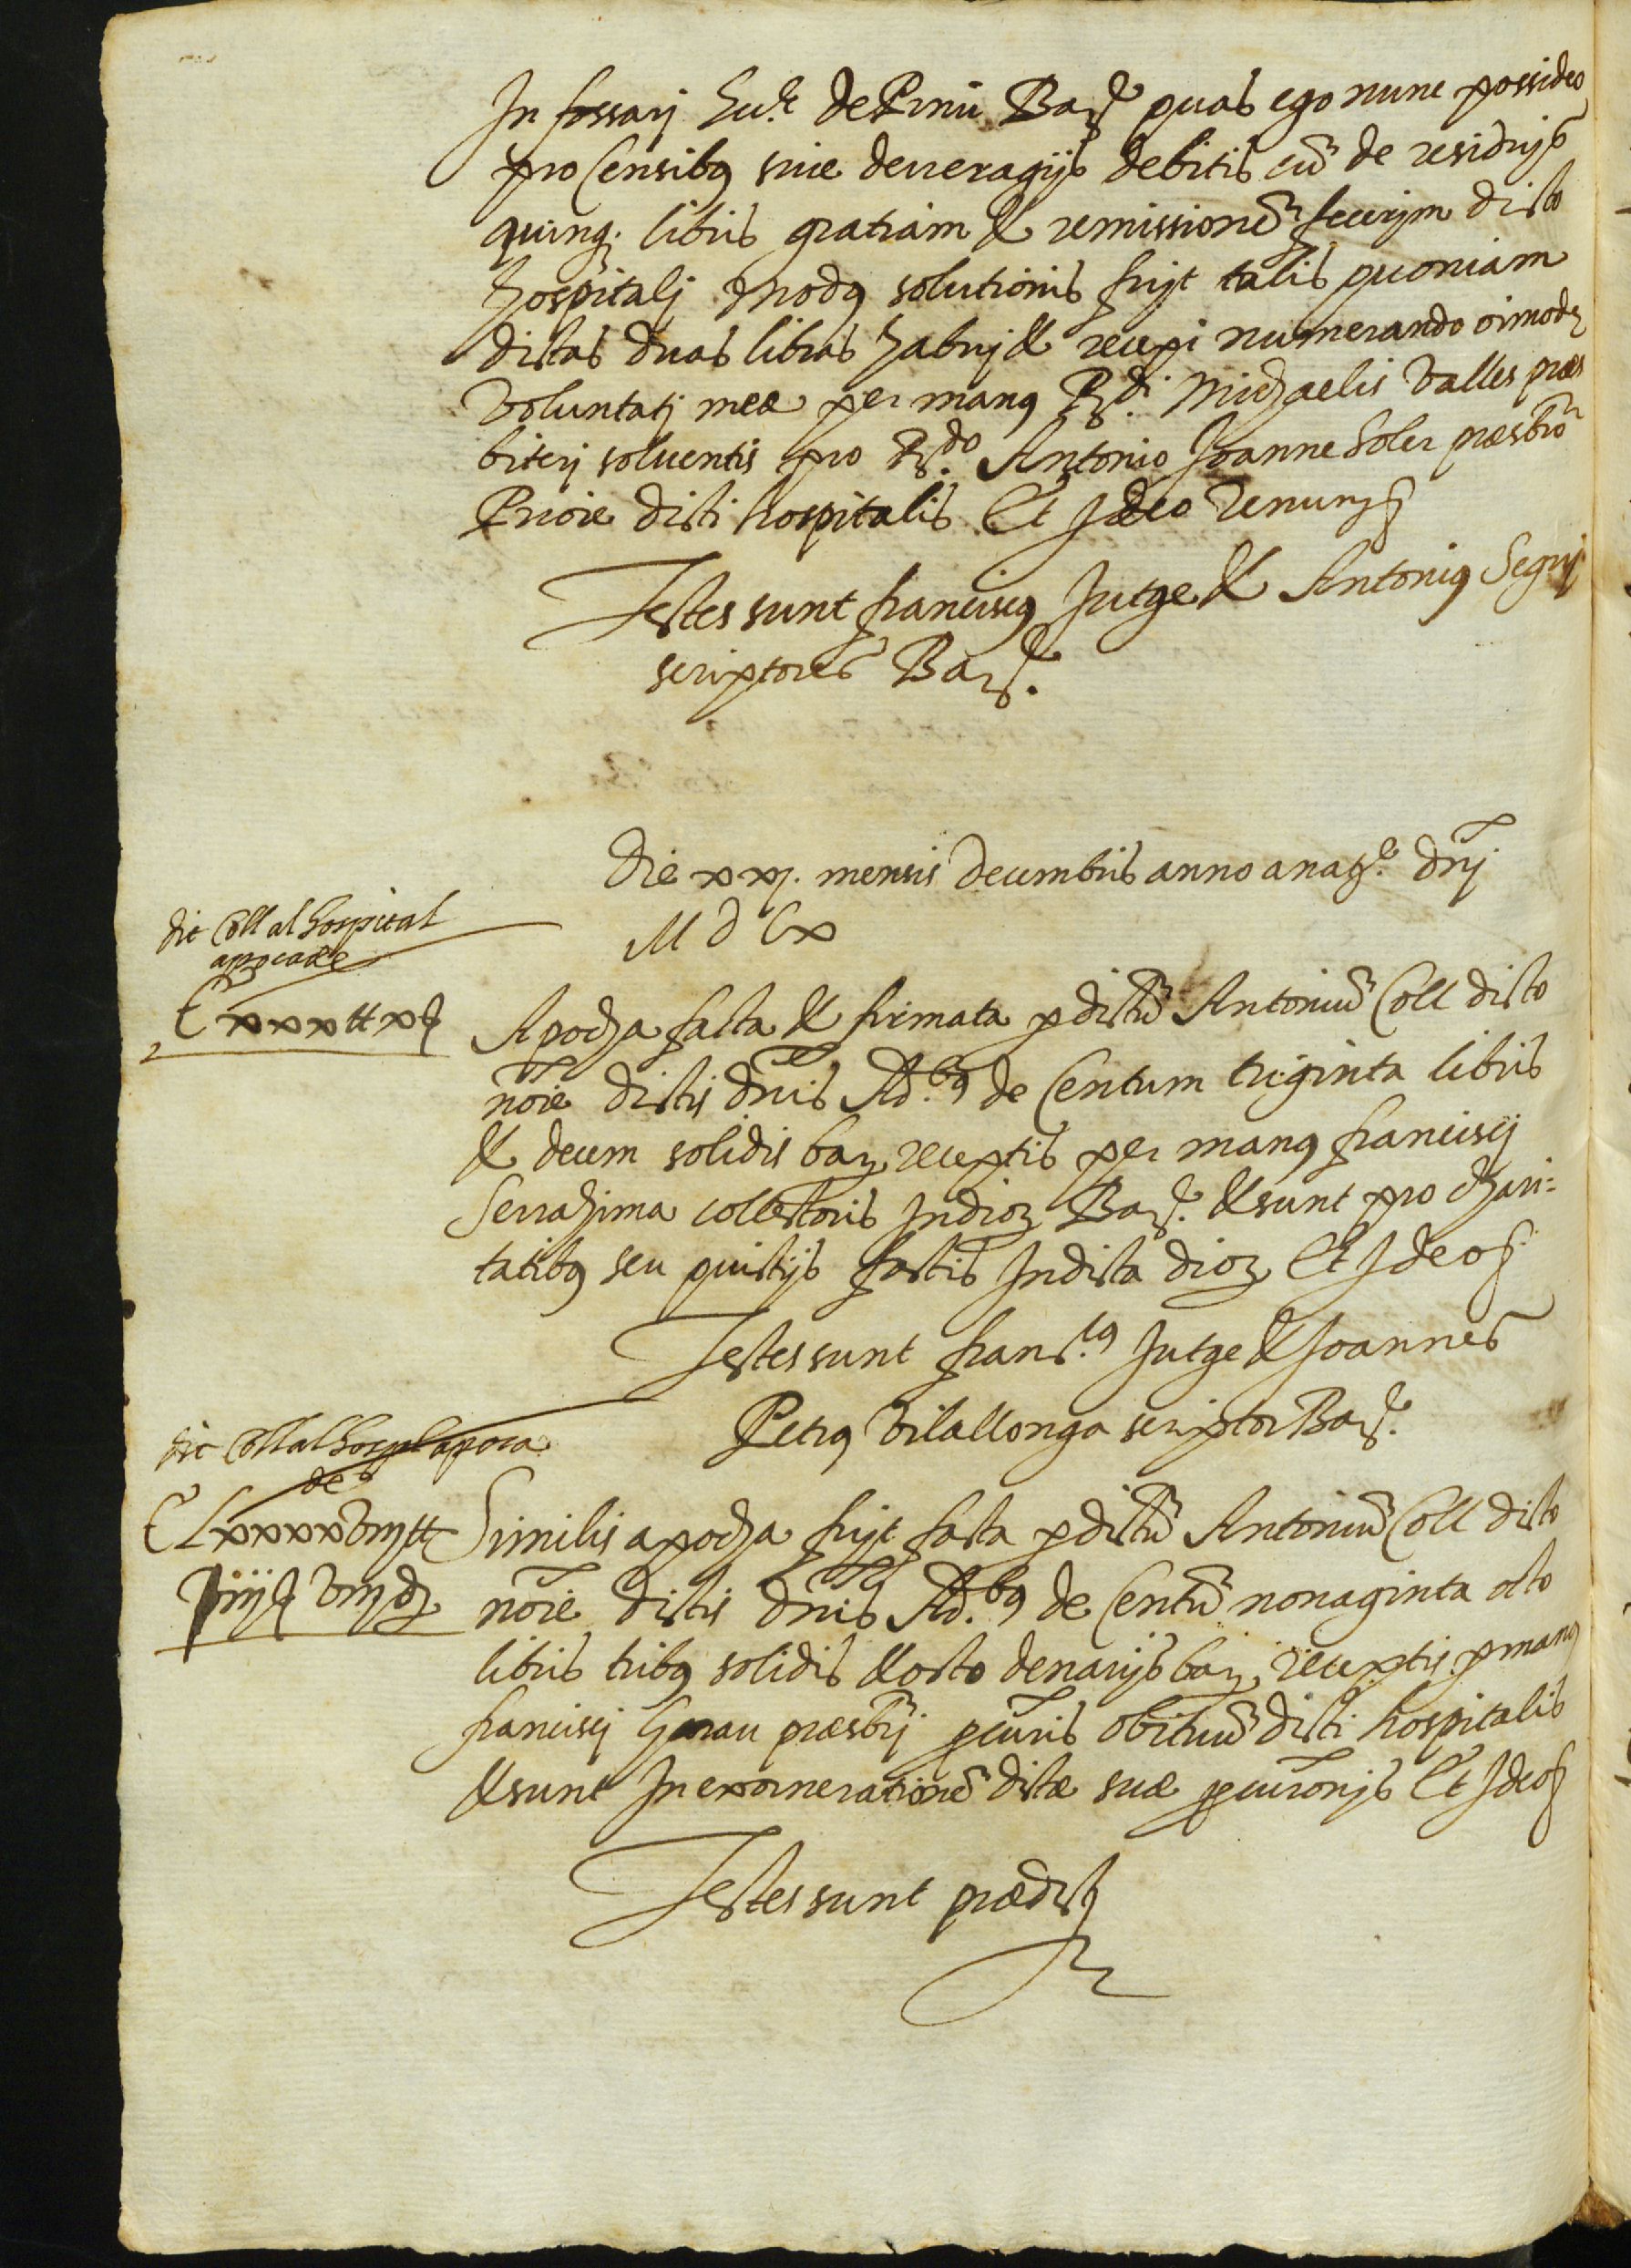 In fossarj Eccl.e de Pinu Bar.e quas ego nunc possideo
pro Censibꝯ sive deveragijs debitis cũ de residuijs
quinqȝ libris gratiam & remissionẽ fecerim dicto
hospitalj modꝯ solutionis fuit talis quoniam
dictas duas libras habuj & recepi numerando oimodȩ
Voluntatj meæ per manꝯ R.di Michaelis Valles præs
biterj solventis pro R.do Antonio Joanne Soler præsbr̃o
Priore dicti hospitalis Et Ideo renunç
Testes sunt franciscꝯ Jutge & Antoniꝯ Seguj
scriptores Bar.e
Die xxj. mensis Decembris anno a nat.e dñj
M D C x
dit Coll al hospital
apoca de
Cxxx ℔ x s
Apocha facta & firmata p dictũ Antoniũ Coll dicto
nõie dictis dñis Ad.bꝯ de Centum triginta libris
& decem solidis bar receptis per manꝯ franciscj
Serrahima collectoris In dioc Bar.e & sunt pro chari=
tatibꝯ seu quistijs factis In dicta dioc Et Ideo
Testes sunt fran.cꝯ Jutge & Joannes
Petrꝯ Vilallonga scriptor Bar.e
dit Coll al hospl apoca
de
CLxxxxviij ℔
iij s viij d
Similis apocha fuit facta p dictũ Antoniũ Coll dicto
nõie dictis dñis Ad.bꝯ de Centũ nonaginta octo
libris tribꝯ solidis & octo denarijs bar receptis p manꝯ
franciscj Garau præsbr̃j pcũris obituũ dicti hospitalis
& sunt In exonerationẽ dictæ suæ pcũronjs Et Ideo
Testes sunt prædictj